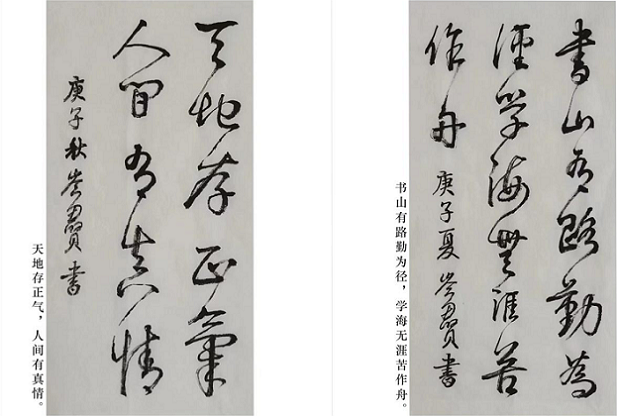 天地存正氣
人間有真情
庚子秋 書
天地存正气，人间有真情。
書山有路勤為
徑学海無涯苦
作舟 庚子夏 書
书山有路勤为径，学海无涯苦作舟。